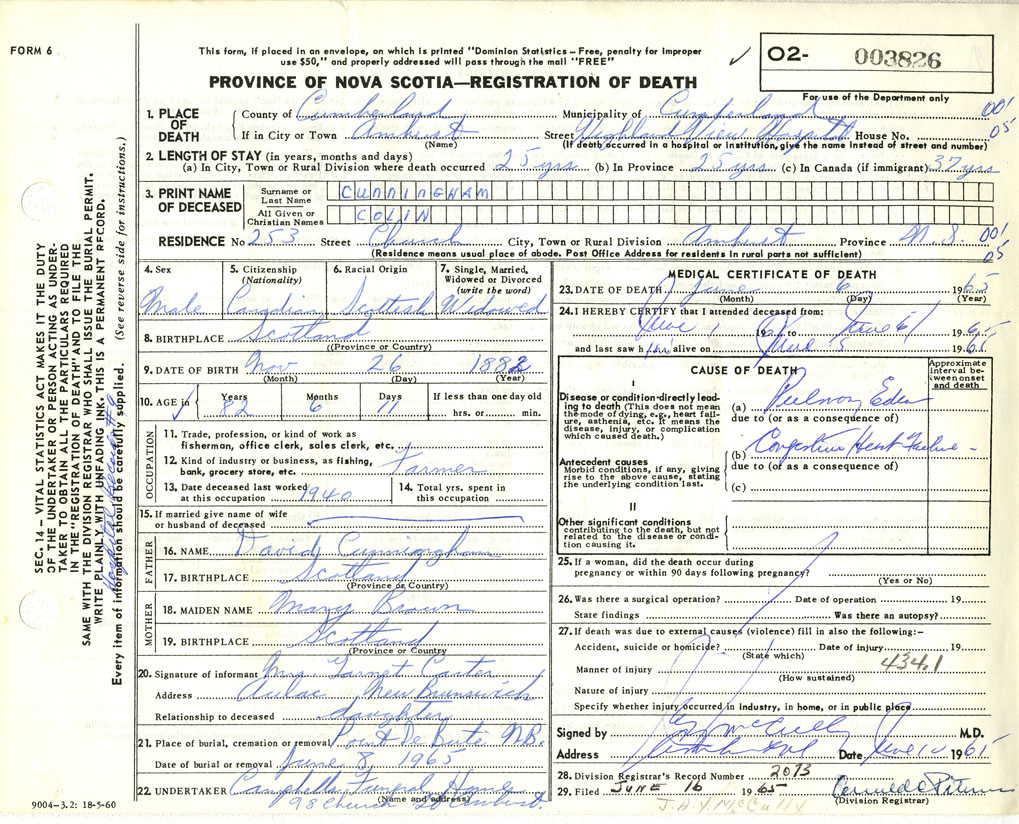 FORM 6
This form, if placed in an envelope, on which is printed "Dominion Statistics – Free, penalty for improper
use $50," and properly addressed will pass through the mail "FREE"
PROVINCE OF NOVA SCOTIA—REGISTRATION OF DEATH
O2- 003826
For use of the Department only
1. PLACE OF DEATH
County of Cumberland Municipality of Cumberland 00'
If in City or Town Amherst Street Highland View Hospital House No. 05
(Name) (If death occurred in a hospital or institution, give the name instead of street and number)
2. LENGTH OF STAY (in years, months and days)
(a) In City, Town or Rural Division where death occurred 25 yrs. (b) In Province 25 yrs. (c) In Canada (if immigrant) 37 yrs
3. PRINT NAME OF DECEASED
Surname or Last Name CUNNINGHAM
All Given or Christian Names COLIN
RESIDENCE No 253 Street Church City, Town or Rural Division Amherst Province N.S. 00'
(Residence means usual place of abode. Post Office Address for residents in rural parts not sufficient) 05
4. Sex Male
5. Citizenship (Nationality) Canadian
6. Racial Origin Scottish
7. Single, Married, Widowed or Divorced (write the word) Widowed
8. BIRTHPLACE Scotland
(Province or Country)
9. DATE OF BIRTH Nov 26 1882
(Month) (Day) (Year)
10. AGE in Years 82 Months 6 Days 11 If less than one day old
hrs. or min.
OCCUPATION
11. Trade, profession, or kind of work as
fisherman, office clerk, sales clerk, etc.
12. Kind of industry or business, as fishing,
bank, grocery store, etc. Farmer
13. Date deceased last worked at this occupation 1940
14. Total yrs. spent in this occupation
15. If married give name of wife
or husband of deceased
FATHER
16. NAME David Cunningham
17. BIRTHPLACE Scotland
(Province or Country)
MOTHER
18. MAIDEN NAME Mary Brown
19. BIRTHPLACE Scotland
(Province or Country)
20. Signature of informant Mrs. Garnet Carter
Address Aulac New Brunswick
Relationship to deceased daughter
21. Place of burial, cremation or removal Point De Bute N.B.
Date of burial or removal June 8, 1965
22. UNDERTAKER Campbells Funeral Home
(Name and address)
98 Church St Amherst.
MEDICAL CERTIFICATE OF DEATH
23. DATE OF DEATH June 6 1965
(Month) (Day) (Year)
24. I HEREBY CERTIFY that I attended deceased from:
June 1 19 to June 6 1965
and last saw him alive on June 5 1965
CAUSE OF DEATH
Approximate interval between onset and death
I
Disease or condition directly leading to death (This does not mean the mode of dying, e.g., heart failure, asthenia, etc. It means the disease, injury, or complication which caused death.)
(a)
due to (or as a consequence of)
Antecedent causes
Morbid conditions, if any, giving rise to the above cause, stating the underlying condition last.
(b) Congestive Heart Failure -
due to (or as a consequence of)
(c)
II
Other significant conditions
contributing to the death, but not related to the disease or condition causing it.
25. If a woman, did the death occur during
pregnancy or within 90 days following pregnancy?
(Yes or No)
26. Was there a surgical operation? Date of operation 19
State findings Was there an autopsy?
27. If death was due to external causes (violence) fill in also the following:-
Accident, suicide or homicide? Date of injury 19
(State which)
Manner of injury 434.1
(How sustained)
Nature of injury
Specify whether injury occurred in industry, in home, or in public place
Signed by McCully M.D.
Address Amherst Date June 10 1965
28. Division Registrar's Record Number 2073
29. Filed JUNE 16 1965
(Division Registrar)
J.A.Y. McCully
9004–3.2: 18-5-60
SEC. 14 – VITAL STATISTICS ACT MAKES IT THE DUTY
OF THE UNDERTAKER OR PERSON ACTING AS UNDER-
TAKER TO OBTAIN ALL THE PARTICULARS REQUIRED
IN THE "REGISTRATION OF DEATH" AND TO FILE THE
SAME WITH THE DIVISION REGISTRAR WHO SHALL ISSUE THE BURIAL PERMIT.
WRITE PLAINLY, WITH UNFADING INK. THIS IS A PERMANENT RECORD.
Every item of information should be carefully supplied. (See reverse side for instructions.)